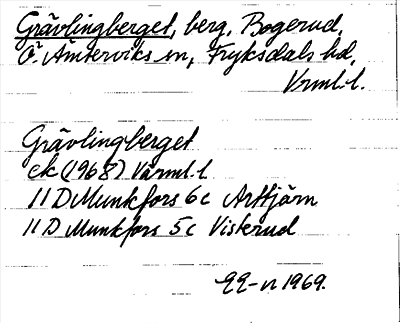 Grävlingberget, berg, Bogerud,
Ö. Ämterviks sn, Fryksdals hd,
Vrml. l.
Grävlingberget
ek (1968) Värml. l.
11 D Munkfors 6 c Arttjärn
11 D Munkfors 5 c Visterud
1969.